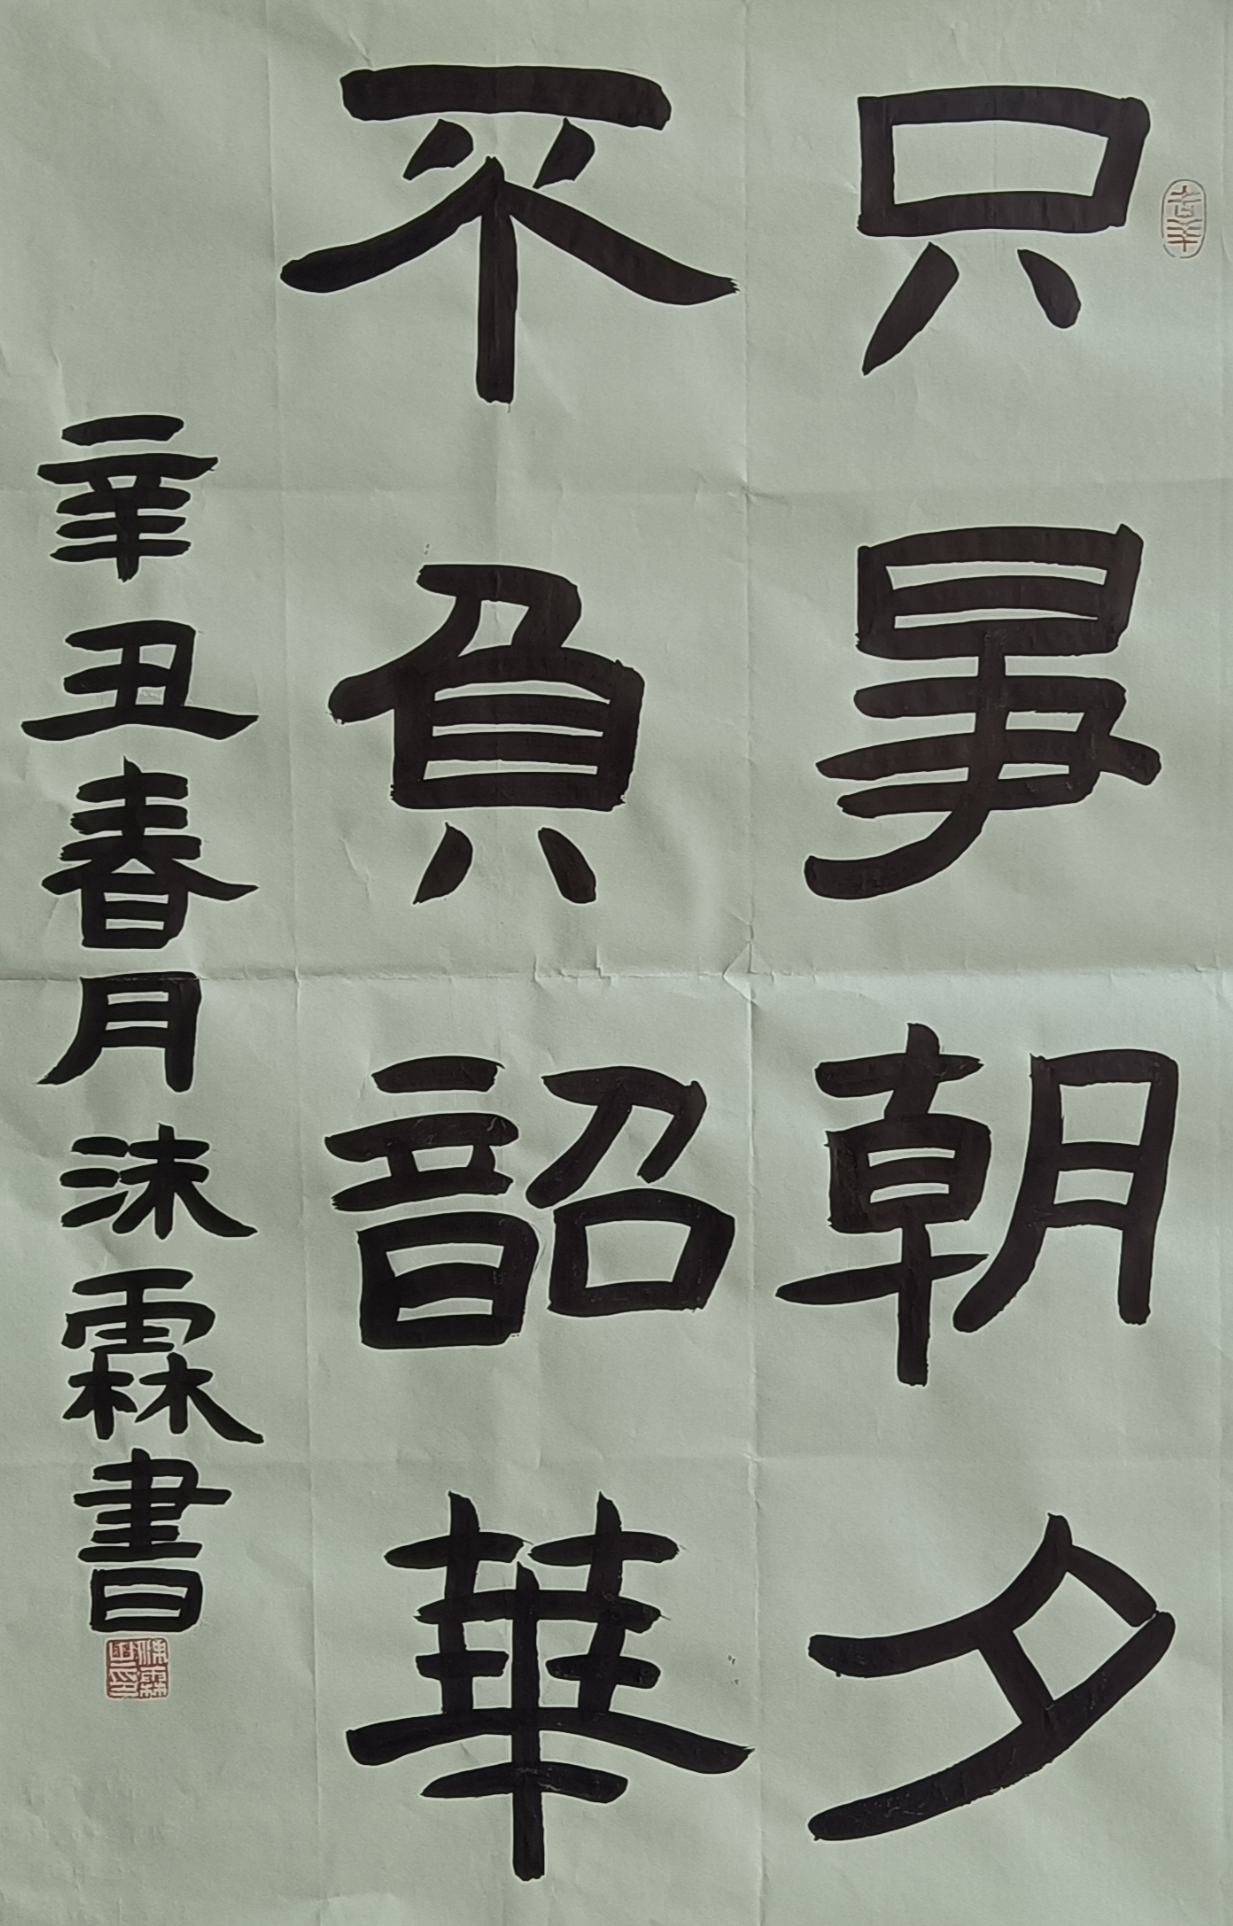 只爭朝夕
不負韶華
辛丑春月沫霖書